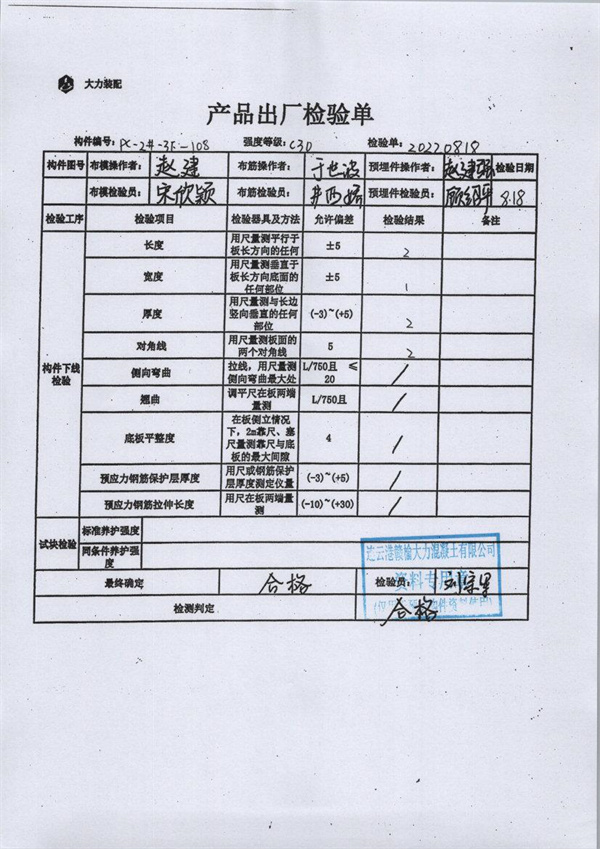 大力装配
产品出厂检验单
构件编号: PC-2#-3F-108 强度等级: C30 检验单: 20220818
构件图号 布模操作者: 赵建 布筋操作者: 于世波 预埋件操作者: 赵建强 检验日期
布模检验员: 宋欣颖 布筋检验员: 预埋件检验员: 8.18
检验工序 检验项目 检验器具及方法 允许偏差 检验结果 备注
构件下线检验
长度 用尺量测平行于板长方向的任何 ±5 2
宽度 用尺量测垂直于板长方向底面的任何部位 ±5 1
厚度 用尺量测与长边竖向垂直的任何部位 (-3)~(+5) 2
对角线 用尺量测板面的两个对角线 5 2
侧向弯曲 拉线，用尺量测侧向弯曲最大处 L/750且 ≤20 /
翘曲 调平尺在板两端量测 L/750且 /
底板平整度 在板侧立情况下，2m靠尺、塞尺量测靠尺与底板的最大间隙 4 /
预应力钢筋保护层厚度 用尺或钢筋保护层厚度测定仪量 (-3)~(+5) /
预应力钢筋拉伸长度 用尺在板两端量测 (-10)~(+30) /
试块检验 标准养护强度
同条件养护强度
最终确定 合格 检验员:
检测判定 合格
连云港赣榆大力混凝土有限公司
资料专用章